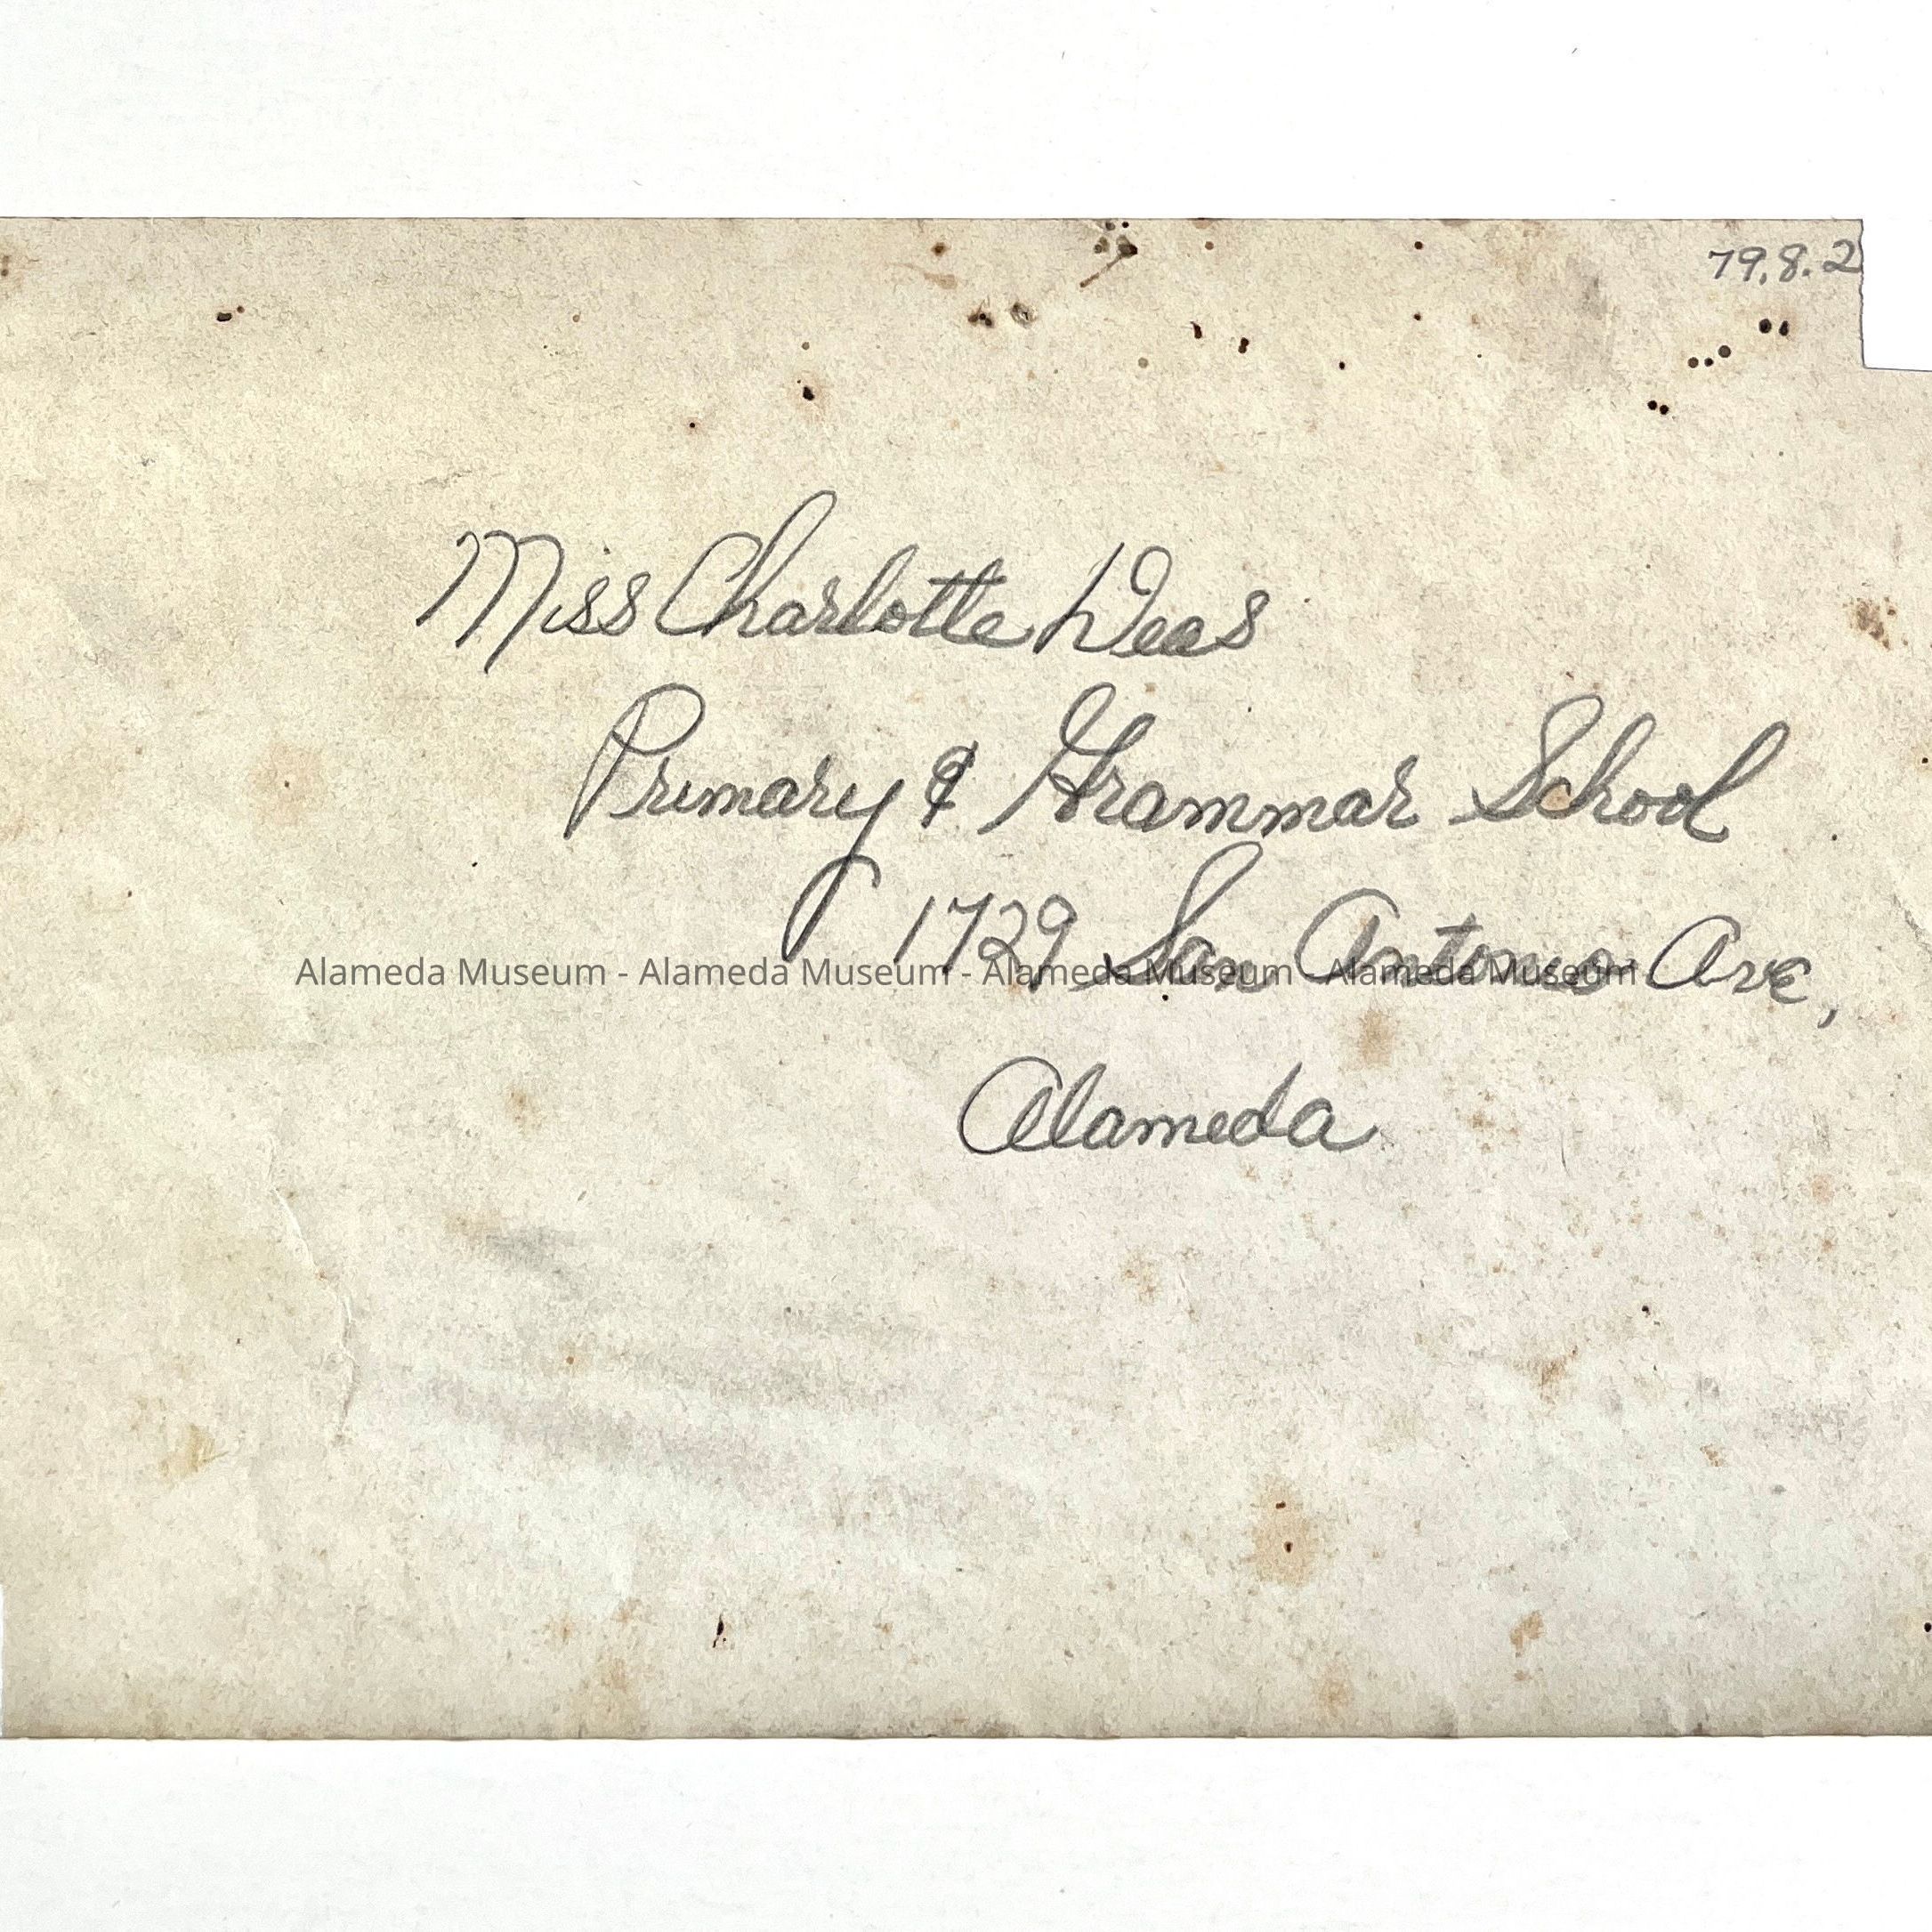 79.8.2
Miss Charlotte Weas
Primary & Grammar School
1729 San Antonio Ave,
Alameda Museum - Alameda Museum - Alameda Museum - Alameda Museum
Alameda